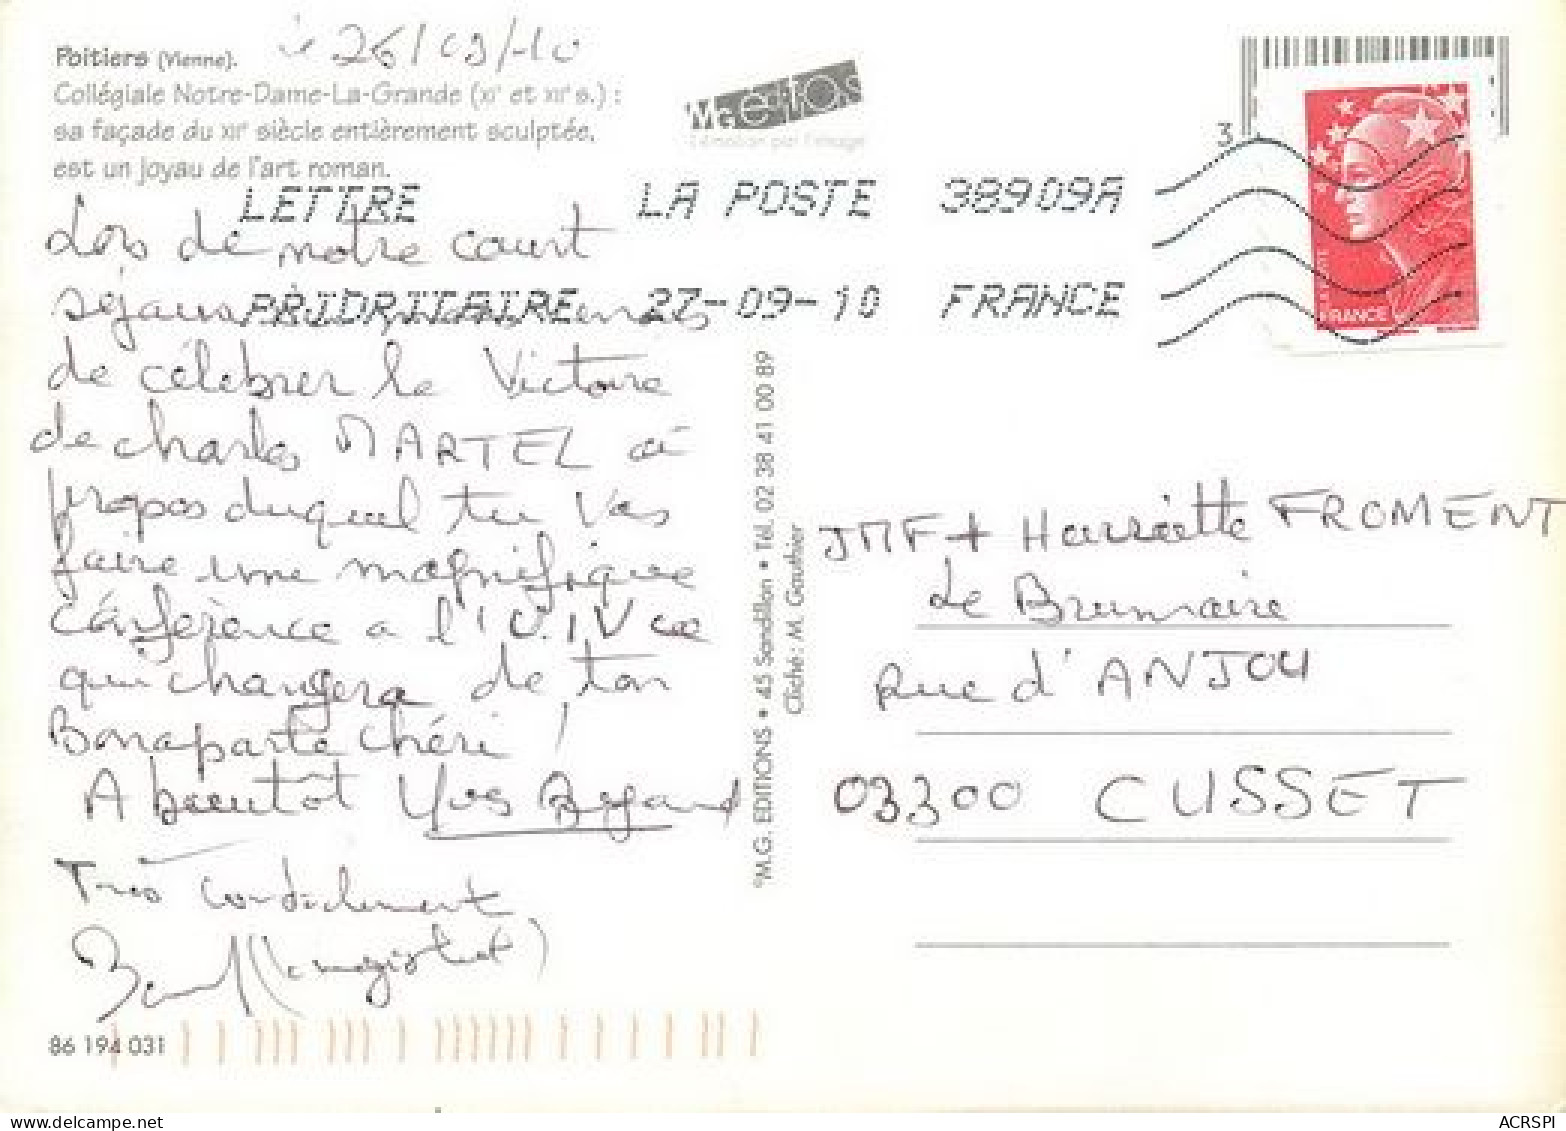 Poitiers (Vienne). le 26/09/10
Collégiale Notre-Dame-La-Grande (XIe et XIIe s.) :
sa façade du XIIe siècle entièrement sculptée,
est un joyau de l'art roman.
MG éditos
L'émotion par l'image
3
LETTRE LA POSTE 38909A
PRIORITAIRE 27-09-10 FRANCE
FRANCE
Lors de notre court
séjour
de célébrer la Victoire
de Charles MARTEL à
propos duquel tu vas
faire une magnifique
conférence a l'U.I.V ce
qui changera de ton
Bonaparte chéri !
A bientôt Yves
Très cordialement
86 194 031
°M.G. EDITIONS • 45 Sandillon • Tél. 02 38 41 00 89
Cliché : M. Gauthier
JMF + Henriette FROMENT
Le Brumaire
Rue d'ANJOU
03300 CUSSET
ACRSPI